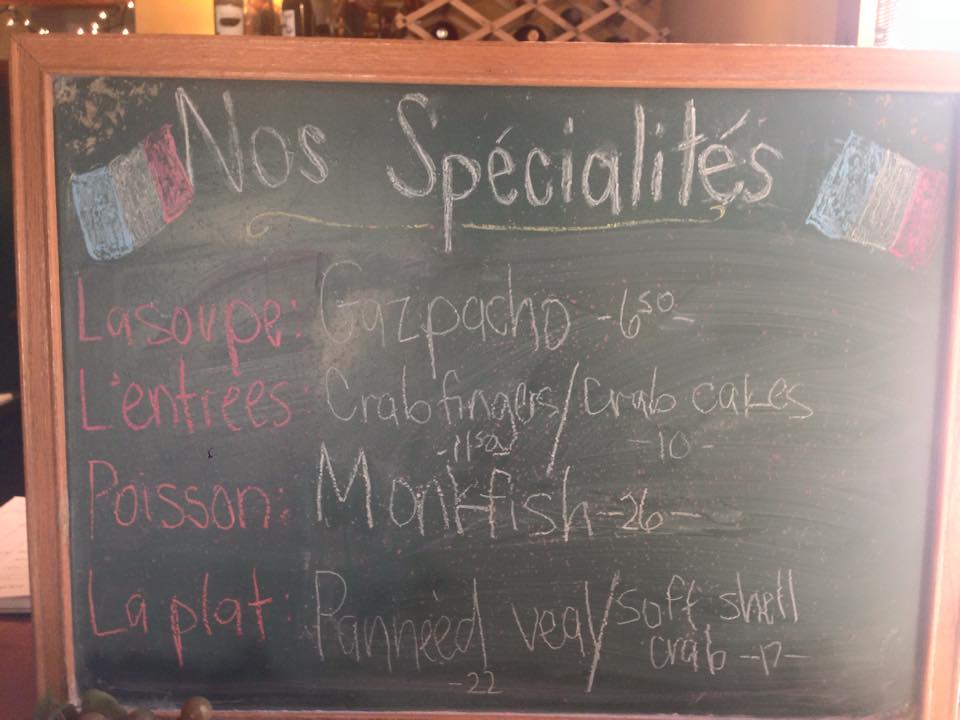 Nos Spécialités
La soupe: Gazpacho -6⁵⁰-
L'entrées: Crab fingers/Crab cakes
-11⁵⁰ -10-
Poisson: Monkfish -26-
La plat: Pannéed veal/soft shell
crab -17-
-22